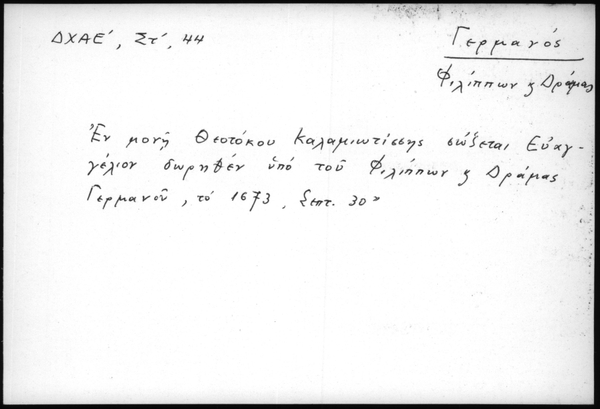 ΔΧΑΕ', ΣΤ', 44
Γερμανός
Φιλίππων & Δράμας
Ἐν μονῇ Θεοτόκου Καλαμιωτίσσης σώζεται Εὐαγ-
γέλιον δωρηθέν ὑπό τοῦ Φιλίππων & Δράμας
Γερμανοῦ, τό 1673, Σεπτ. 30»